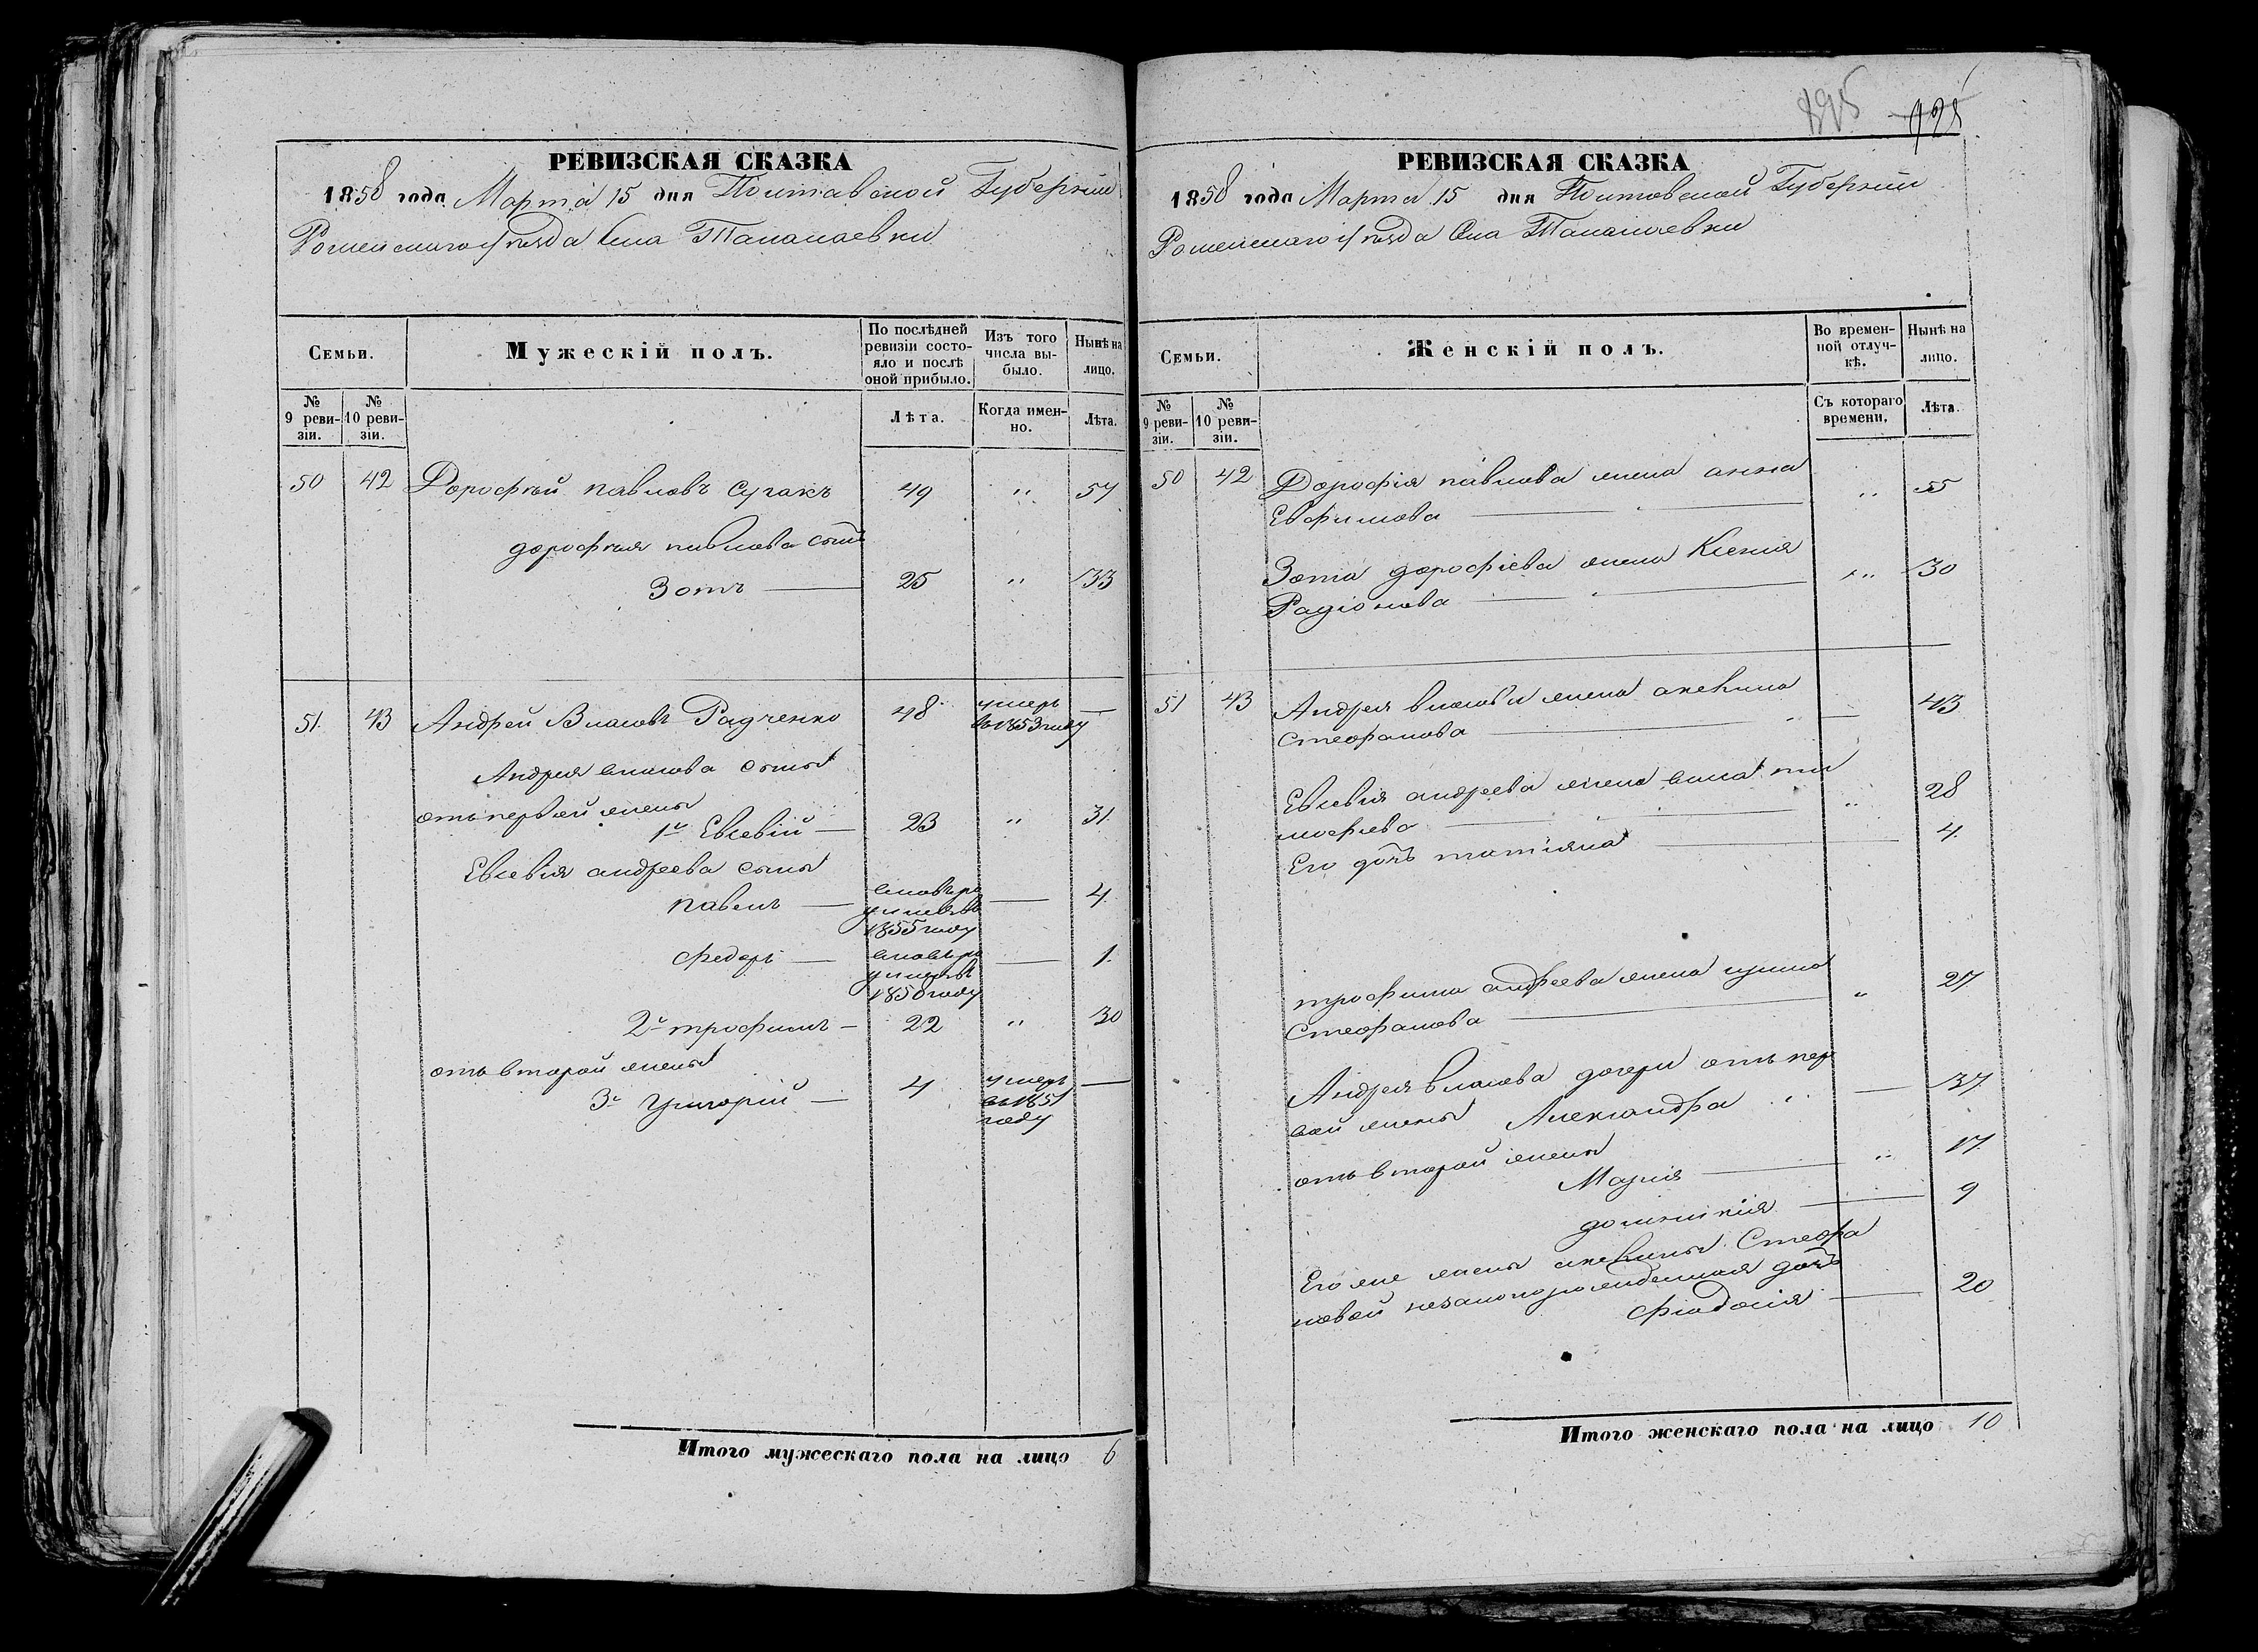 895 895
РЕВИЗСКАЯ СКАЗКА
1858 года Марта 15 дня Полтавской Губернии
Роменскаго уѣзда Села Талалаевки
Семьи.
Мужескій полъ.
По послѣдней ревизіи состояло и послѣ оной прибыло.
Изъ того числа выбыло.
Нынѣ на лицо.
№ 9 ревизіи.
№ 10 ревизіи.
Лѣта.
Когда именно.
Лѣта.
50 42 Дорофей павловъ Сугакъ 49 " 57
дорофея павлова сынъ
Зотъ 25 " 33
51. 43 Андрей Власовъ Радченко 48 умеръ въ 1853 году —
Андрея власова сыны
отъ первой жены
1й Евсевій 23 " 31.
Евсевія андреева сыны
павелъ — 1855 году — 4.
федоръ — 1850 году — 1.
2й трофимъ — 22 " 30
отъ второй жены
3й Григорій — 4 умеръ въ 1851 году —
Итого мужескаго пола на лицо 6
РЕВИЗСКАЯ СКАЗКА
1858 года Марта 15 дня Полтавской Губернии
Роменскаго уѣзда Села Талалаевки
Семьи.
Женскій полъ.
Во временной отлучкѣ.
Нынѣ на лицо.
№ 9 ревизіи.
№ 10 ревизіи.
Съ котораго времени.
Лѣта.
50 42 Дорофія павлова жена анна
Евфимова " 55
Зота дорофіева жена Ксения
Радіонова " 30
51 43 Андрея власова жена акелина
Стефанова — 43
Евсевія андреева жена анна ти
мофеева " 28
Его дочь татіяна 4.
трофима андреева жена ирина
Стефанова " 27
Андрея власова дочери отъ пер
вой жены Александра " — 37
отъ второй жены
Мария " 17
домникія 9
Его же жены акелины Стефа
новой незаконорожденная дочь
Фіодосія 20
Итого женскаго пола на лицо 10